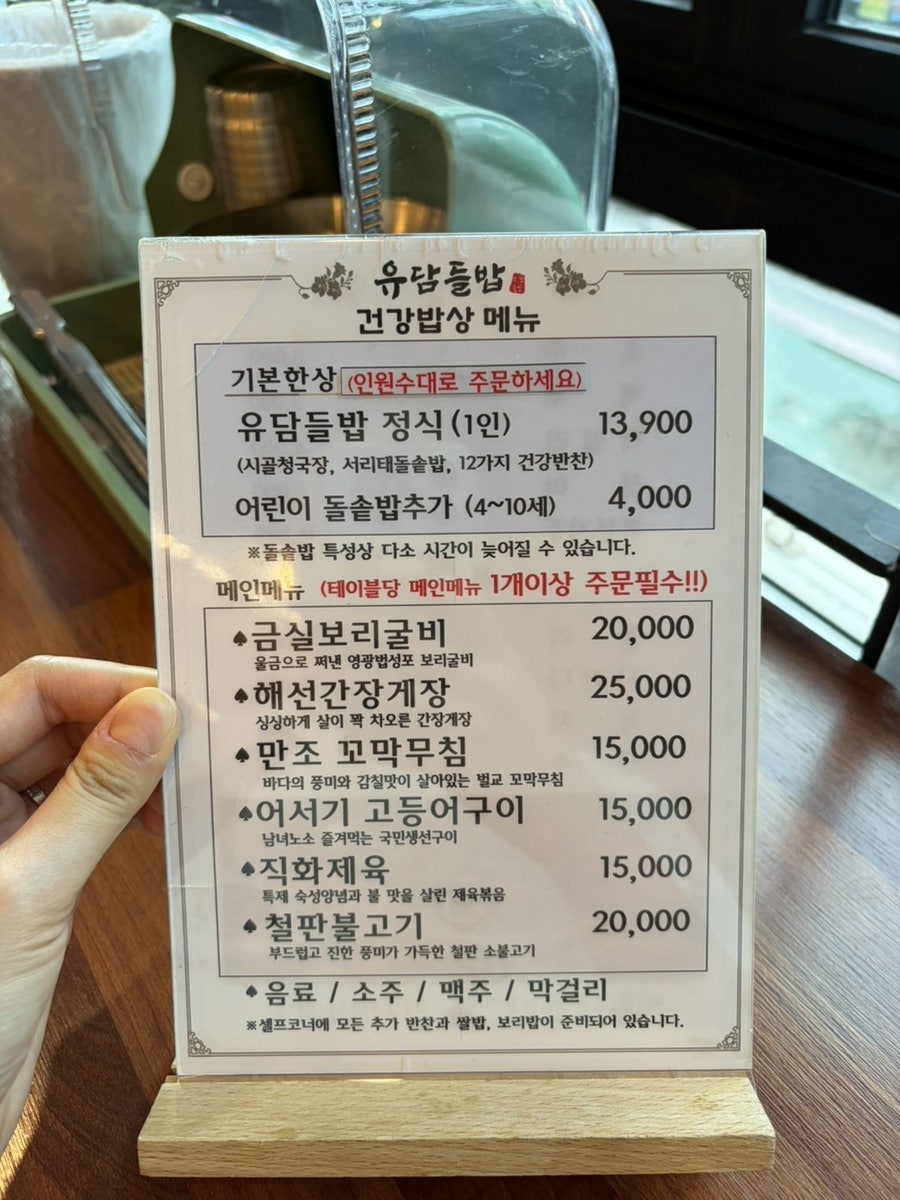 유담들밥
건강밥상 메뉴
기본한상 (인원수대로 주문하세요)
유담들밥 정식 (1인) 13,900
(시골청국장, 서리태돌솥밥, 12가지 건강반찬)
어린이 돌솥밥추가 (4~10세) 4,000
※돌솥밥 특성상 다소 시간이 늦어질 수 있습니다.
메인메뉴 (테이블당 메인메뉴 1개이상 주문필수!!)
♠금실보리굴비 20,000
울금으로 쪄낸 영광법성포 보리굴비
♠해선간장게장 25,000
싱싱하게 살이 꽉 차오른 간장게장
♠만조 꼬막무침 15,000
바다의 풍미와 감칠맛이 살아있는 벌교 꼬막무침
♠어서기 고등어구이 15,000
남녀노소 즐겨먹는 국민생선구이
♠직화제육 15,000
특제 숙성양념과 불 맛을 살린 제육볶음
♠철판불고기 20,000
부드럽고 진한 풍미가 가득한 철판 소불고기
♠음료 / 소주 / 맥주 / 막걸리
※셀프코너에 모든 추가 반찬과 쌀밥, 보리밥이 준비되어 있습니다.